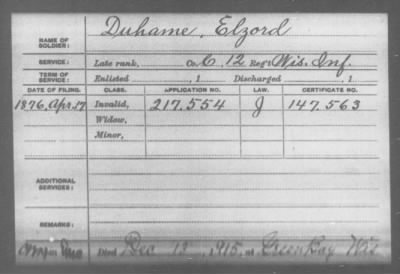 NAME OF SOLDIER: Duhame, Elzord
SERVICE: Late rank, Co. C, 12 Reg't Wis. Inf.
TERM OF SERVICE: Enlisted , 1 Discharged , 1
DATE OF FILING. CLASS. APPLICATION NO. LAW. CERTIFICATE NO.
1876, Apr. 17 Invalid, 217.554 J 147.563
Widow,
Minor,
ADDITIONAL SERVICES:
REMARKS:
Died Dec 12, 1915, at Green Bay Wis